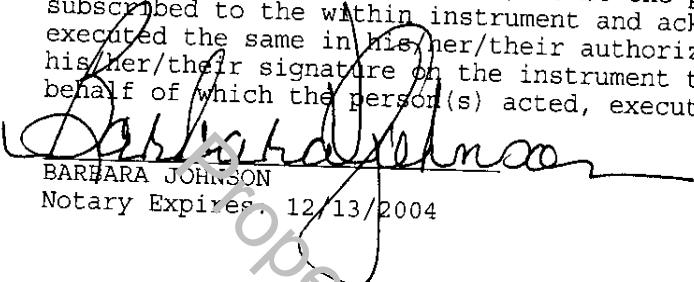 subscribed to the within instrument and ack
executed the same in his/her/their authoriz
his/her/their signature on the instrument t
behalf of which the person(s) acted, execut
Barbara Johnson
BARBARA JOHNSON
Notary Expires: 12/13/2004
Prope